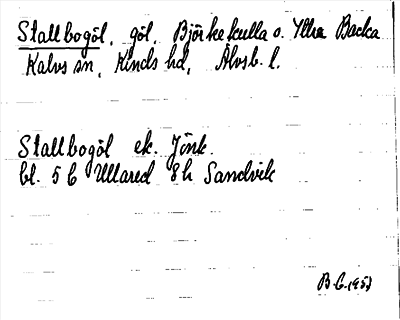 Stallbogöl, göl, Björkekulla o. Yttra Backa
Kalvs sn, Kinds hd, Älvsb. l.
Stallbogöl ek. Jönk.
bl. 5 C Ullared 8 h Sandvik